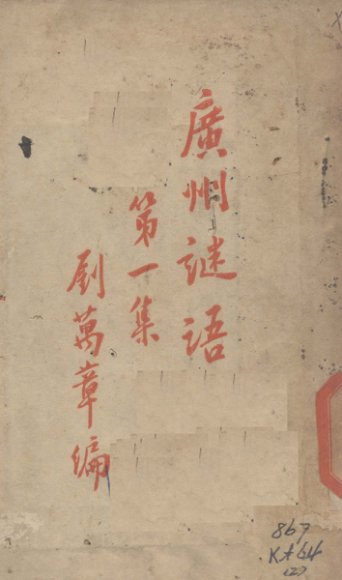 廣州謎語
第一集
劉萬章編
867
K±64
(2)